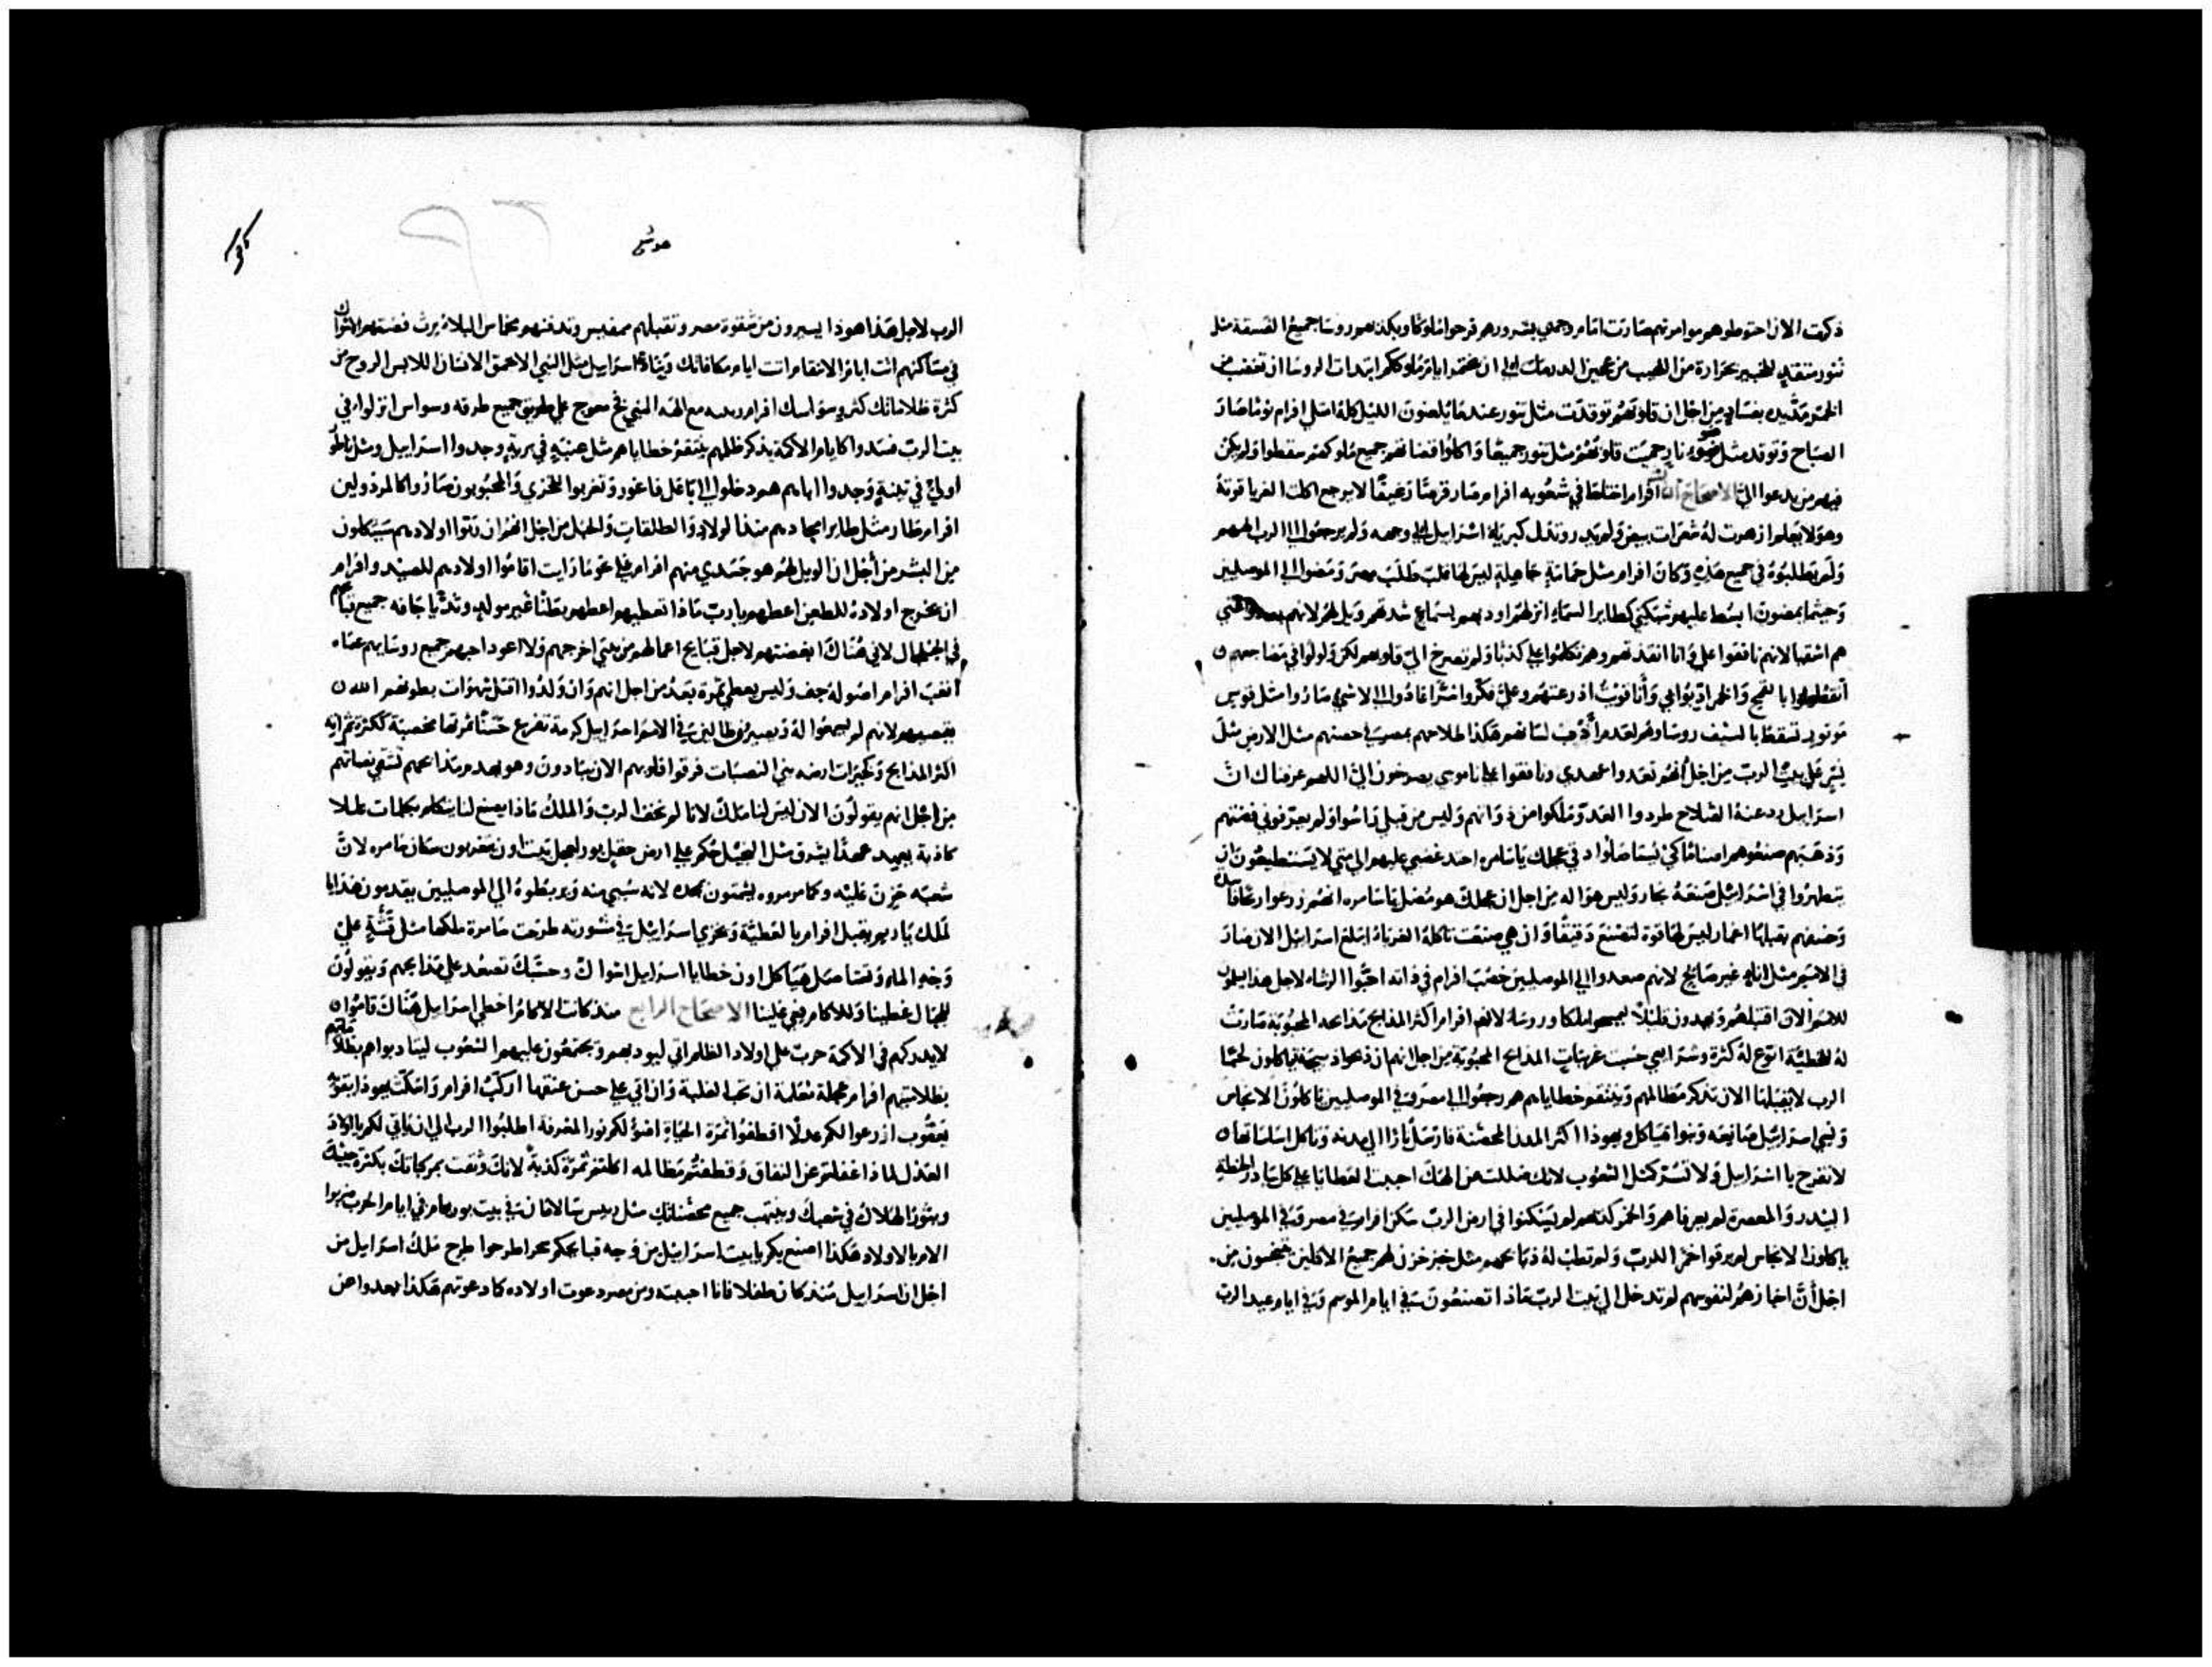 ذكرت الان احتوطوهم موامرتهم صارت امام وجهي بشرورهم فرحوا ملوكا وبكذبهم روسا جميع الفسقة مثل
تنور متقد للخبيز بحرارة من اللهيب من عجين الى ان يختمر ايام ملوككم ابتدات الروسا ان تغضب من
الخمر من اجل ان قلوبهم توقدت مثل تنور عندما الليل كله امتلى افرام نوما صار
الصباح وتوقد مثل ضوء نار حميت قلوبهم مثل تنور جميعا واكلوا قضاتهم جميع ملوكهم سقطوا ولم يكن
فيهم من يدعوا الي الاصحاح الثالث افرام اختلط في شعوبه افرام صار قرصا لا يرجع اكلت الغربا قوته
وهو لا يعلم ازهرت له شعرات بيض ولم يدر وتذل كبرياء اسرائيل في وجهه ولم يرجعوا الى الرب الههم
ولم يطلبوه في جميع هذه وكان افرام مثل حمامة جاهلة ليس لها قلب طلب مصر ومضوا الى الموصليين
وحيثما يمضون ابسط عليهم شبكتي كطاير السماء انزلهم اودبهم بسماع شدتهم ويل لهم لانهم
هم اشقيا لانهم نافقوا علي وانا انقذتهم وهم تكلموا علي كذبا ولم تصرخ الي قلوبهم لكن ولولوا في مضاجعهم
بالقمح والخمر ادبوا بي وانا قويت اذرعتهم وعلي فكروا شرا عادوا الى لا شي صاروا مثل قوس
موتور تسقط بالسيف روساوهم لعدم ادب لسانهم هكذا بمصر في حضنهم مثل الارض مثل
نسر على بيت الرب من اجل انهم تعدوا عهدي ونافقوا على ناموسي يصرخون الي اللهم عرفناك ان
اسرائيل رد عنه الصلاح طردوا العدو وملكوا من ذواتهم وليس من قبلي راسوا ولم يعرفوني فضتهم
وذهبهم صنعوهم اصناما كي يستاصلوا دقي عجلك يا سامره احتد غضبي عليهم الى متي لا يستطيعون ان
يتطهروا في اسرائيل صنعة نجار وليس هو اله من اجل ان عجلك هو مضل يا سامره انهم زرعوا رياحا
اغمار ليس لها قوة لتصنع دقيقا وان هي صنعت تاكله الغرباء ابتلع اسرائيل الان صار
في الامم مثل اناء غير صالح لانهم صعدوا الي الموصليين خصب افرام في ذاته احبوا الرشاء لاجل هذا
للامم الان اقبلهم ويهدون قليلا ليمسحوا ملكا وروساء لانهم افرام اكثر المذابح مذابحه المحبوبة صارت
له للخطية اتوع له كثرة وشرايعي حسبت غريبات المذابح المحبوبة من اجل انهم ان ذبحوا ذبيحة فياكلون لحما
الرب لا يقبلها الان تذكر مظالمهم وينتقم خطاياهم هم رجعوا الى مصر وفي الموصليين ياكلون الانجاس
ونسي اسرائيل صانعه وبنوا هياكل ويهوذا اكثر المدن المحصنة فارسل نارا الى مدنه وتاكل اساساتها
لا تفرح يا اسرائيل ولا تسر كمثل الشعوب لانك ضللت عن الهك احببت العطايا على كل بيادر الحنطة
البيدر والمعصرة لم يعرفاهم والخمر كذبهم لم يسكنوا في ارض الرب سكن افرام في مصر وفي الموصليين
ياكلون الانجاس لم يرقوا خمرا للرب ولم تطب له ذبايحهم مثل خبز حزن لهم جميع الاكلين يتنجسون من
اجل ان اخبازهم لنفوسهم لم تدخل الى بيت الرب ماذا تصنعون في ايام الموسم وفي ايام عيد الرب
هوشع
الرب لاجل هذا هوذا يسيرون من شقوة مصر وتقبلهم ممفيس وتدفنهم مخماس البلاء يرث فضتهم الاشواك
في مساكنهم اتت ايام الانتقام اتت ايام مكافاتك اسرائيل مثل النبي الاحمق الانسان اللابس الروح من
كثرة ظلاماتك كثر وسواسك افرام مع الله النبي فخ معوج على طريق جميع طرقه وسواس انزلوا في
بيت الرب فسدوا كايام الاكمة يذكر ظلمهم ينتقم خطاياهم مثل عنب في برية وجدوا اسرائيل ومثل ناطور
اولي في تينة وجدوا اباهم هم دخلوا الى باعل فاغور وتغربوا للخزي والمحبوبون صاروا كالمرذولين
افرام طار مثل طاير امجادهم منذ الولاد والطلقات والحبل من اجل انهم ان ربوا اولادهم سيثكلون
من البشر من اجل ان الويل لهم هو جسدي منهم افرام على نحو ما رايت اقاموا اولادهم للصيد وافرام
ان يخرج اولاده للطعن اعطهم يا رب ماذا تعطيهم اعطهم بطنا غير مولد وثديا جافه جميع
في الجلجال لاني هناك ابغضتهم لاجل قبايح اعمالهم من بيتي اخرجهم ولا اعود احبهم جميع روسايهم عصاه
انغب افرام اصوله جف وليس يعطي ثمرة بعد من اجل انهم وان ولدوا اقتل شهوات بطونهم الله
يقصيهم لانهم لم يسمعوا له ويصيرون طالين في الامم اسرائيل كرمة تفرع حسنا ثمرتها مخصبة ككثرة ثمراته
اكثر المذابح وكخيرات ارضه بني النصبات فرقوا قلوبهم الان يبادون وهو يهدم مذابحهم تشقي نصباتهم
من اجل انهم يقولون الان ليس لنا ملك لانا لم نخف الرب والملك ماذا يصنع لنا يتكلم بكلمات عللا
كاذبة يعهد عهدا يشرق مثل النجيل حكم على ارض حقل بور لعجل بيت اون يتغربون سكان سامره لان
شعبه حزن عليه وكما مرمروه يشمتون بمجده لانه سبي منه وربطوه الى الموصليين يقدمون هدايا
لملك ياريم يقبل افرام بالعطية ويخزي اسرائيل في مشورته طرحت سامرة ملكها مثل قشة علي
وجه الماء وتنتاصل هياكل اون خطايا اسرائيل اشواك وحسك تصعد على مذابحهم ويقولون
للجبال غطينا وللاكام قعي علينا الاصحاح الرابع منذ كانت الاكام اخطى اسرائيل هناك قاموا
لا يدركهم في الاكمة حرب على اولاد الظلم اتي ليودبهم وتجتمعون عليهم الشعوب ليتادبوا هم
بظلامتيهم افرام عجلة متعلمة ان تحب الغلبة وان اتي على حسن عنقها اركب افرام واسكت يهوذا يتقوي
يعقوب ازرعوا لكم عدلا اقطفوا ثمرة الحياة اضوا لكم نور المعرفة اطلبوا الرب الى ان ياتي لكم بالاولاد
العدل لماذا غفلتم عن النفاق وقطفتم مظالمه اكلتم ثمرة كذبة لانك وثقت بمركباتك بكثرة
ويثور الهلاك في شعبك وينتهب جميع محصناتك مثل ريس سالامان في بيت يوربعام في ايام الحرب ضربوا
الام بالاولاد هكذا اصنع بكم يا بيت اسرائيل من وجه قبايحكم سحرا طرحوا طرح ملك اسرائيل من
اجل ان اسرائيل منذ كان طفلا فانا احببته ومن مصر دعوت اولاده كما دعوتهم هكذا بعدوا عن